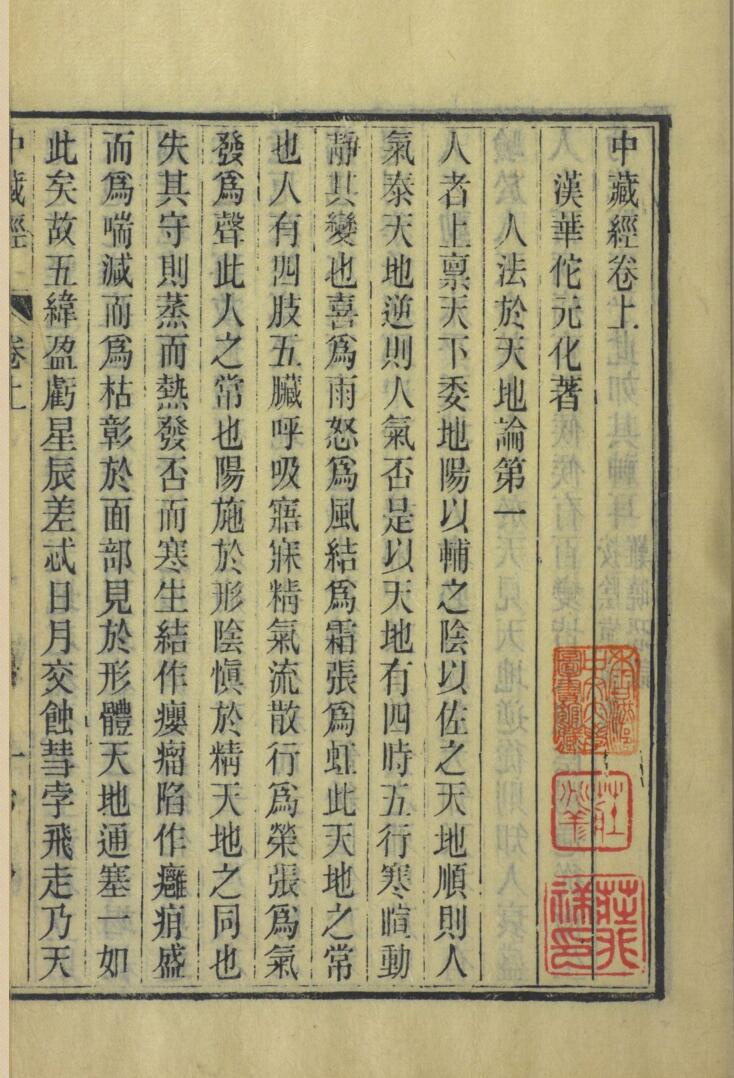 中藏經卷上
漢華佗元化著
人法於天地論第一
人者上禀天下委地陽以輔之陰以佐之天地順則人
氣泰天地逆則人氣否是以天地有四時五行寒暄動
靜其變也喜爲雨怒爲風結爲霜張爲虹此天地之常
也人有四肢五臟呼吸寤寐精氣流散行爲榮張爲氣
發爲聲此人之常也陽施於形陰愼於精天地之同也
失其守則蒸而熱發否而寒生結作癭瘤陷作癰疽盛
而爲喘減而爲枯彰於面部見於形體天地通塞一如
此矣故五緯盈虧星辰差忒日月交蝕彗孛飛走乃天
中藏經 卷上 一